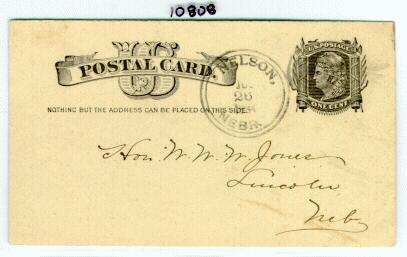 10808
U.S. POSTAGE
NELSON,
POSTAL CARD.
26
NEBR.
ONE CENT
NOTHING BUT THE ADDRESS CAN BE PLACED ON THIS SIDE.
Hon. W. W. W. Jones
Lincoln
Neb